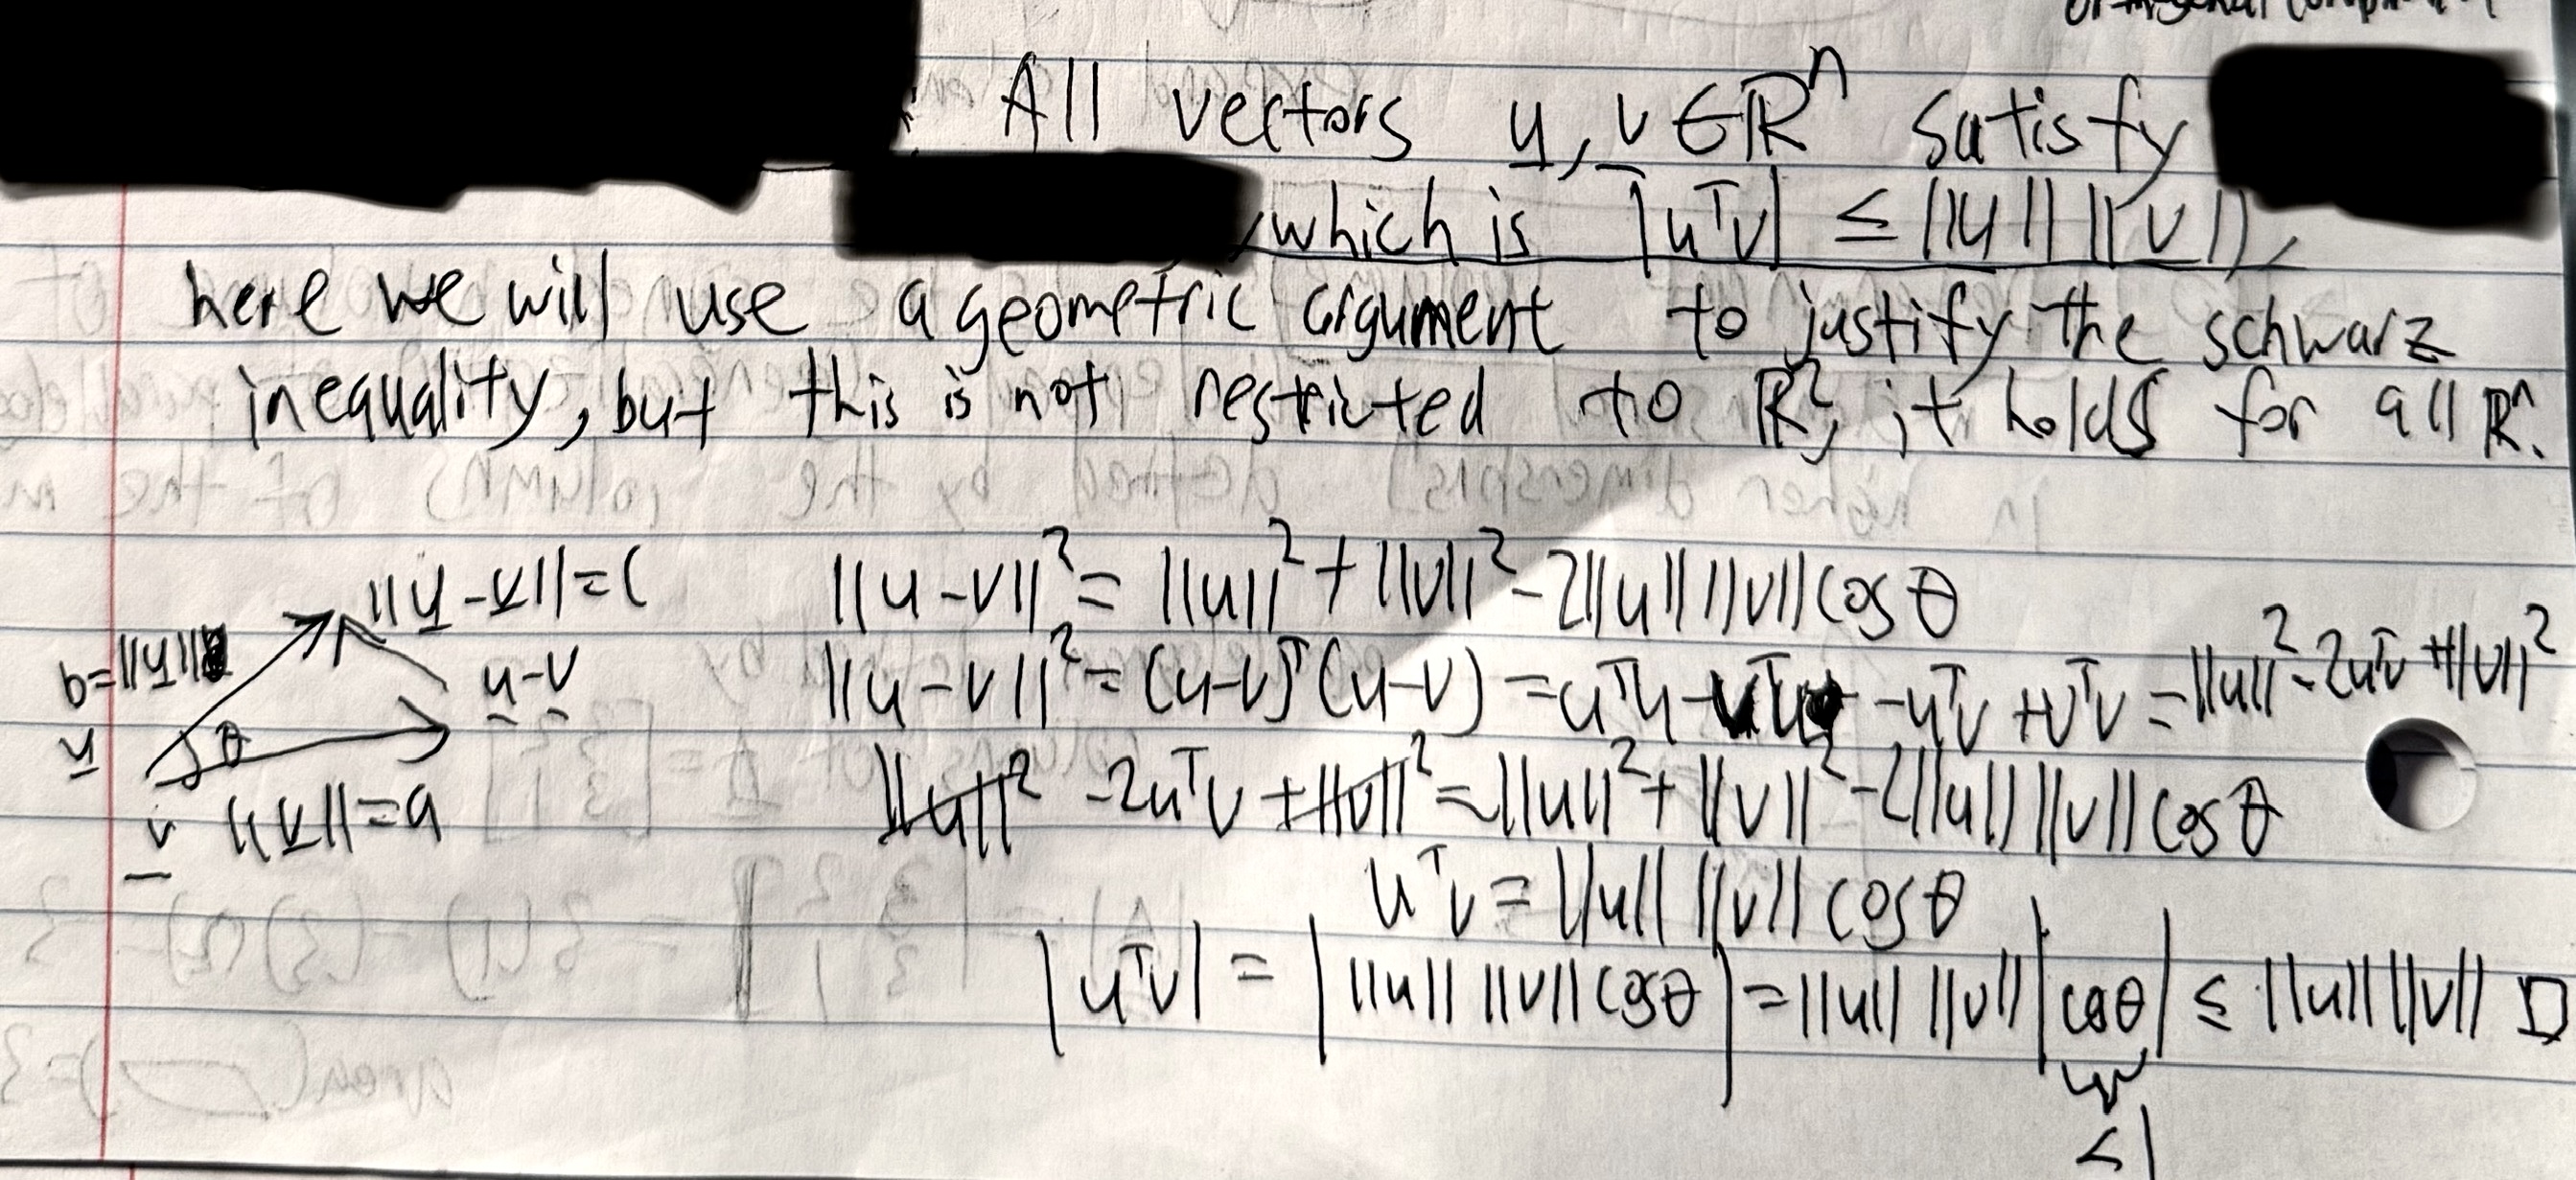 orthogonal complement
: All vectors u, v ∈ ℝⁿ satisfy
, which is |uᵀv| ≤ ||u|| ||v||,
here we will use a geometric argument to justify the schwarz
inequality, but this is not restricted to ℝ², it holds for all ℝⁿ.
||u - v|| = c
||u-v||² = ||u||² + ||v||² - 2||u|| ||v|| cos θ
b = ||u||
u - v
||u-v||² = (u-v)ᵀ(u-v) = uᵀu - vᵀu - uᵀv + vᵀv = ||u||² - 2uᵀv + ||v||²
u
θ
||u||² - 2uᵀv + ||v||² = ||u||² + ||v||² - 2||u|| ||v|| cos θ
v ||v|| = a
uᵀv = ||u|| ||v|| cos θ
|uᵀv| = | ||u|| ||v|| cos θ | = ||u|| ||v|| |cos θ| ≤ ||u|| ||v|| □
≤ 1